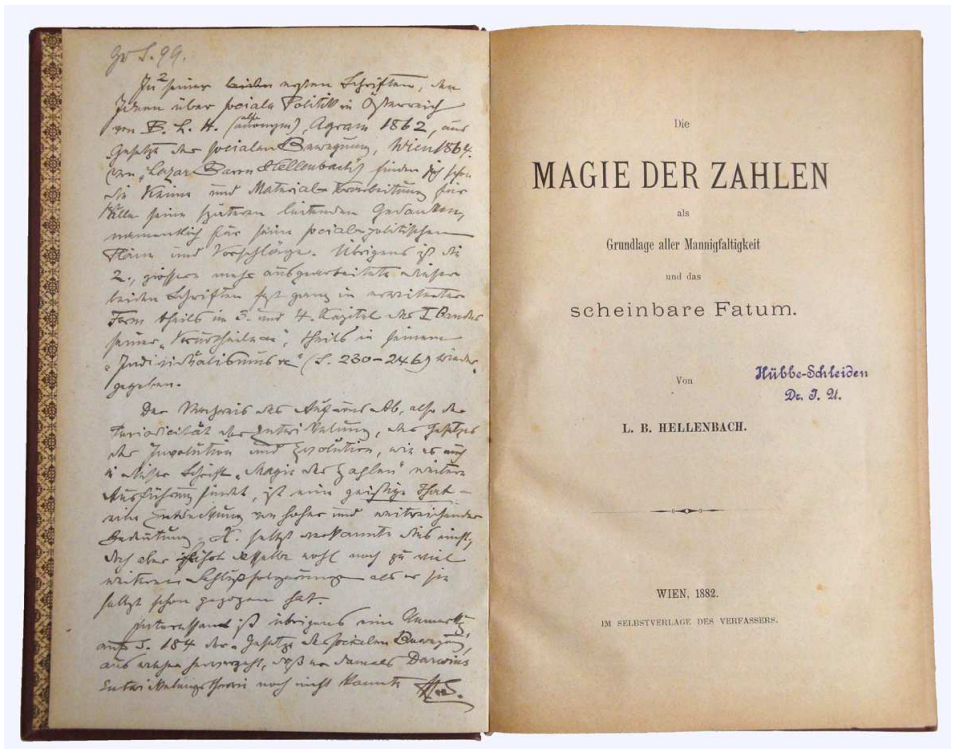 zu S. 99.
In seiner beiden ersten Schriften, den
Ideen über sociale Politik in Österreich
von B. L. H. (anonym), Agram 1862, und
Gesetze der socialen Bewegung, Wien 1864
von Lazar Baron Hellenbach finden sich schon
die Keime und Material-Verarbeitung für
alle seine späteren leitenden Gedanken,
namentlich für seine social-politischen
Pläne und Vorschläge. Übrigens ist die
2., grössere mehr ausgearbeitete dieser
beiden Schriften fast ganz in erweiterter
Form theils in 3. und 4. Kapitel des I Bandes
seiner „Vorurtheile", theils in seinem
„Individualismus" (S. 230-246) wieder
gegeben.
Der Nachweis des Auf und Ab, also der
Periodicität der Entwickelung, des Gesetzes
der Involution und Evolution, wie es auch
in dieser Schrift „Magie der Zahlen" weitere
Ausführung findet, ist eine geistige That -
eine Entdeckung von hoher und weitreichender
Bedeutung. H. selbst verkannte dies nicht,
doch aber führt dasselbe wohl noch zu viel
weiteren Schlußfolgerungen als er sie
selbst schon gezogen hat.
Interessant ist übrigens eine Anmerkg,
auf S. 184 der „Gesetze der socialen Bewegung,
aus welcher hervorgeht, daß er damals Darwins
Entwickelungstheorie noch nicht kannte
Die
MAGIE DER ZAHLEN
als
Grundlage aller Mannigfaltigkeit
und das
scheinbare Fatum.
Von
Hübbe-Schleiden
Dr. J. U.
L. B. HELLENBACH.
WIEN, 1882.
IM SELBSTVERLAGE DES VERFASSERS.